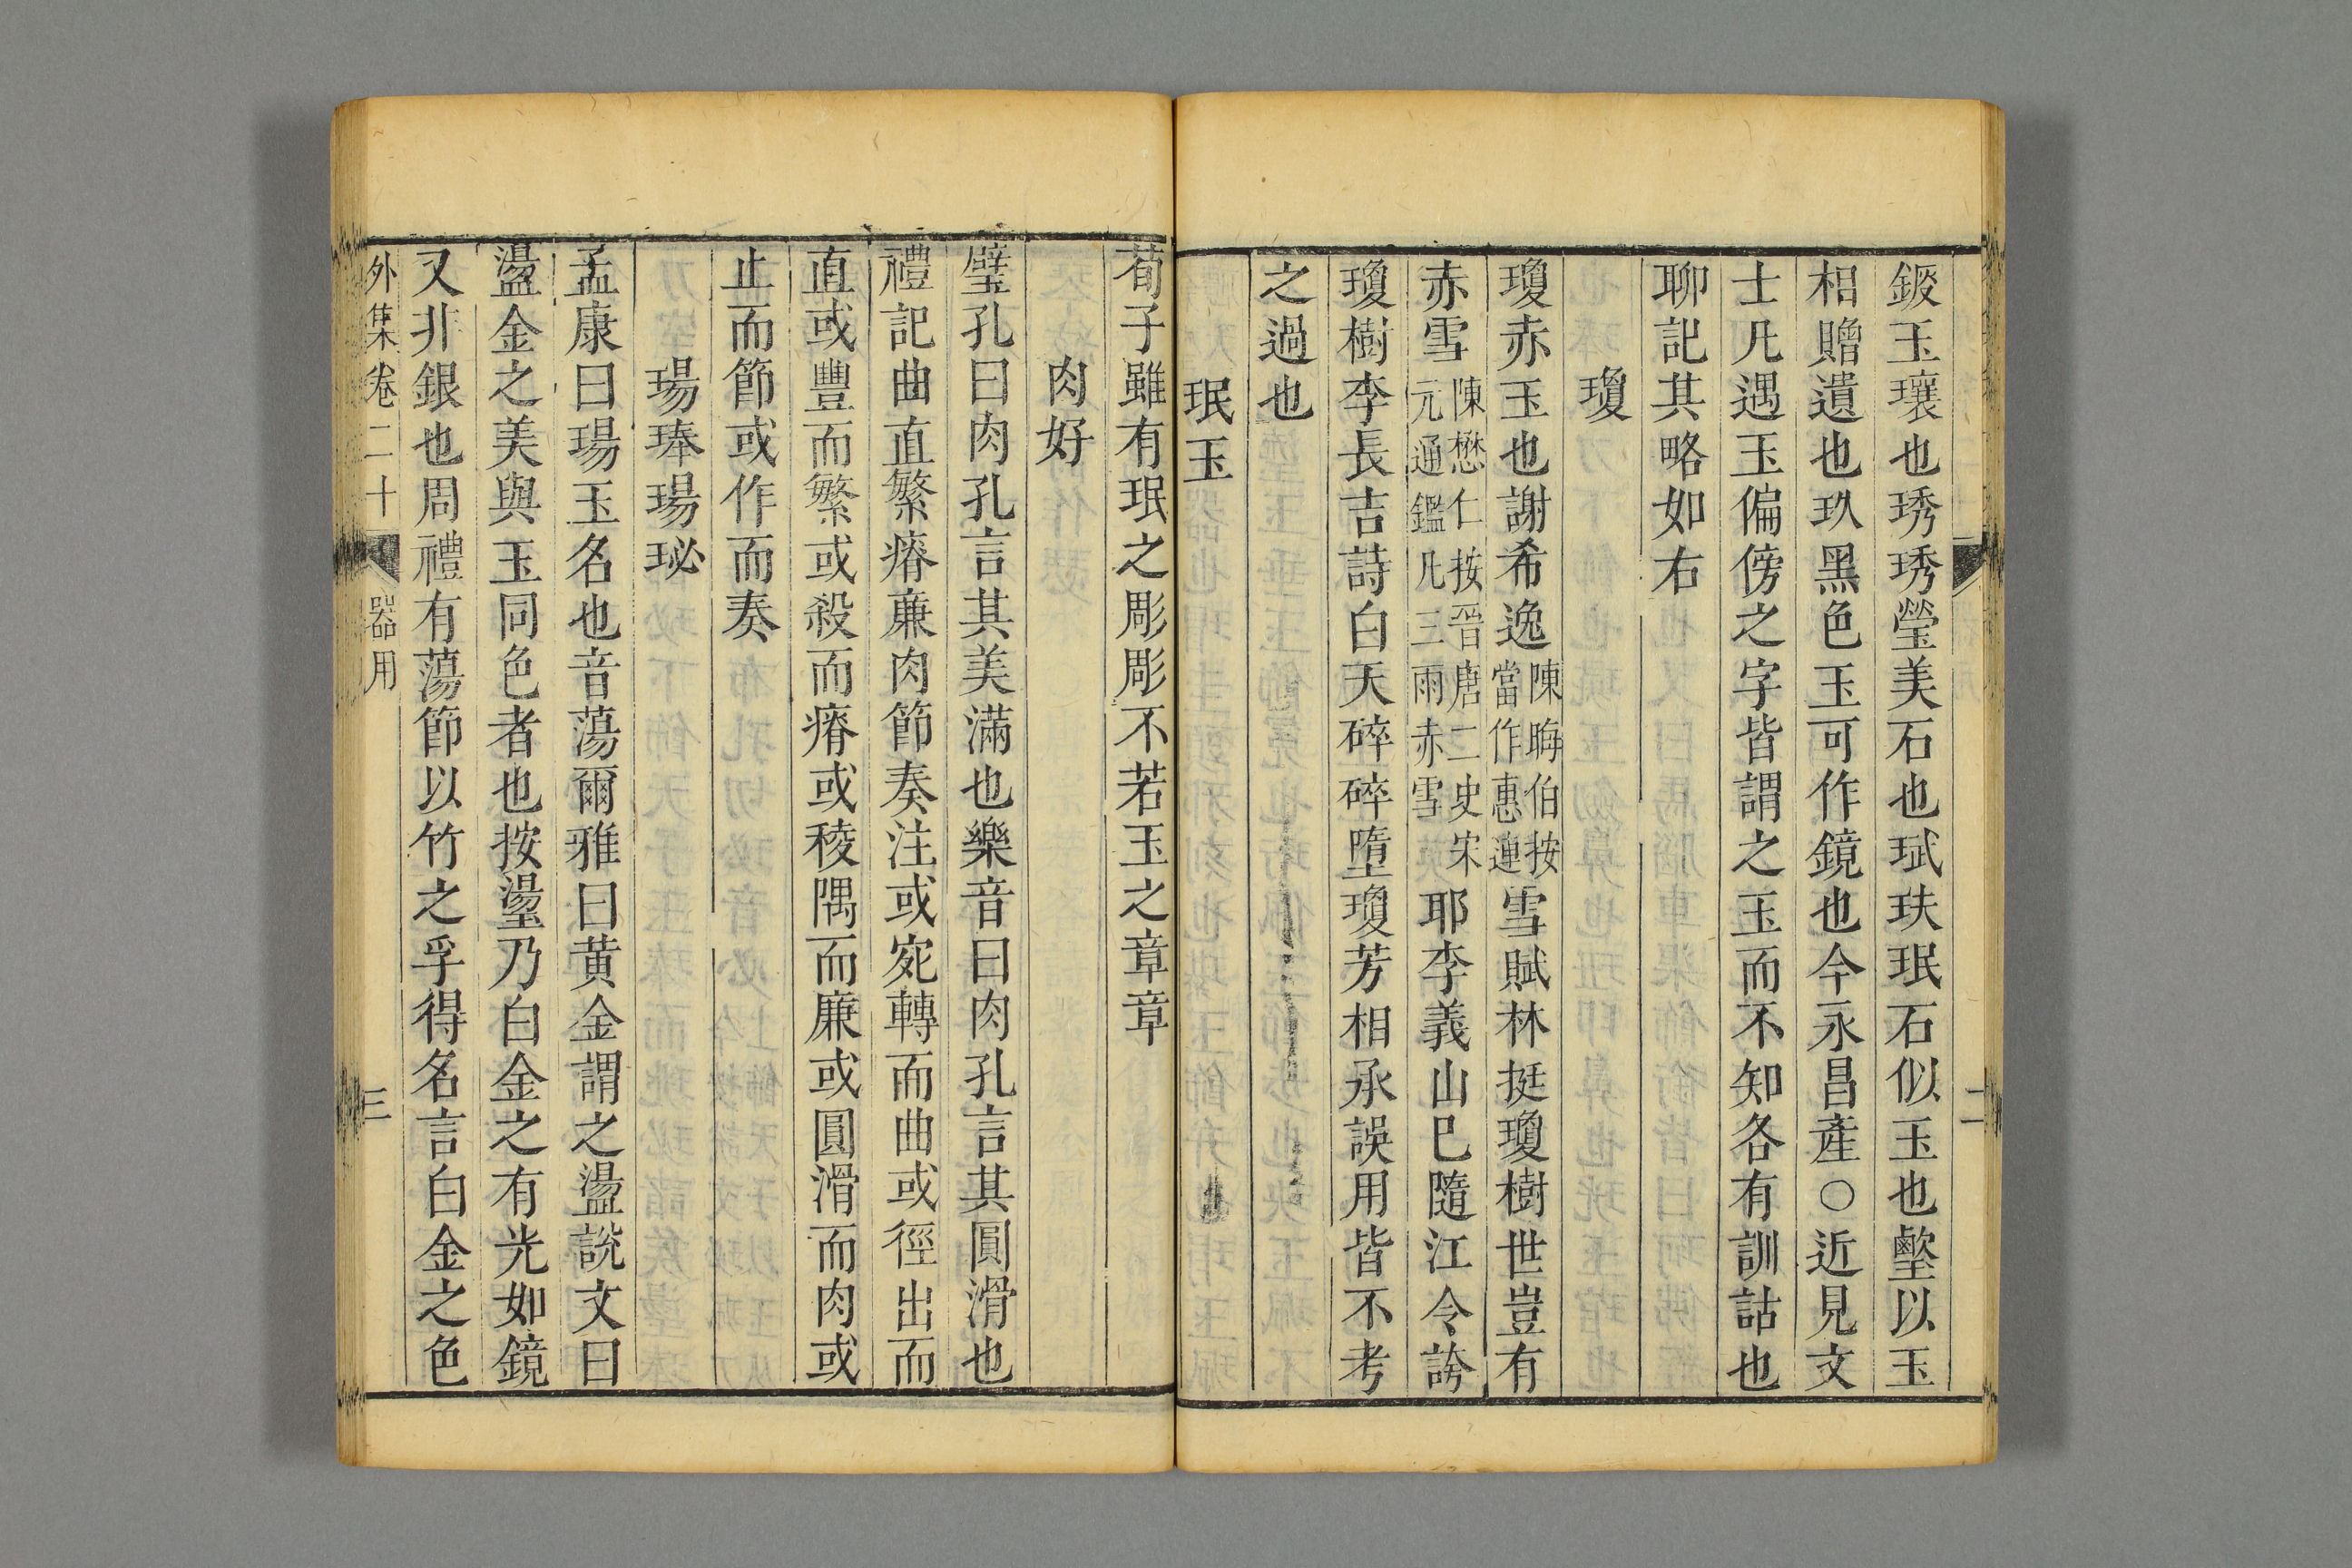 鈠玉瓖也琇琇瑩美石也珷玞珉石似玉也鏨以玉
相贈遺也玖黑色玉可作鏡也今永昌產○近見文
士凡遇玉偏傍之字皆謂之玉而不知各有訓詁也
聊記其略如右
瓊
瓊赤玉也謝希逸陳晦伯按當作惠連雪賦林挺瓊樹世豈有
赤雪陳懋仁按晉唐二史宋元通鑑凡三雨赤雪耶李義山已隨江令誇
瓊樹李長吉詩白天碎碎墮瓊芳相承誤用皆不考
之過也
珉玉
荀子雖有珉之彫彫不若玉之章章
肉好
璧孔曰肉孔言其美滿也樂音曰肉孔言其圓滑也
禮記曲直繁瘠亷肉節奏注或宛轉而曲或徑出而
直或豐而繁或殺而瘠或稜隅而廉或圓滑而肉或
止而節或作而奏
瑒琫瑒珌
孟康曰瑒玉名也音蕩爾雅曰黄金謂之璗說文曰
璗金之美與玉同色者也按璗乃白金之有光如鏡
又非銀也周禮有蕩節以竹之孚得名言白金之色
外集卷二十 器用 三
二